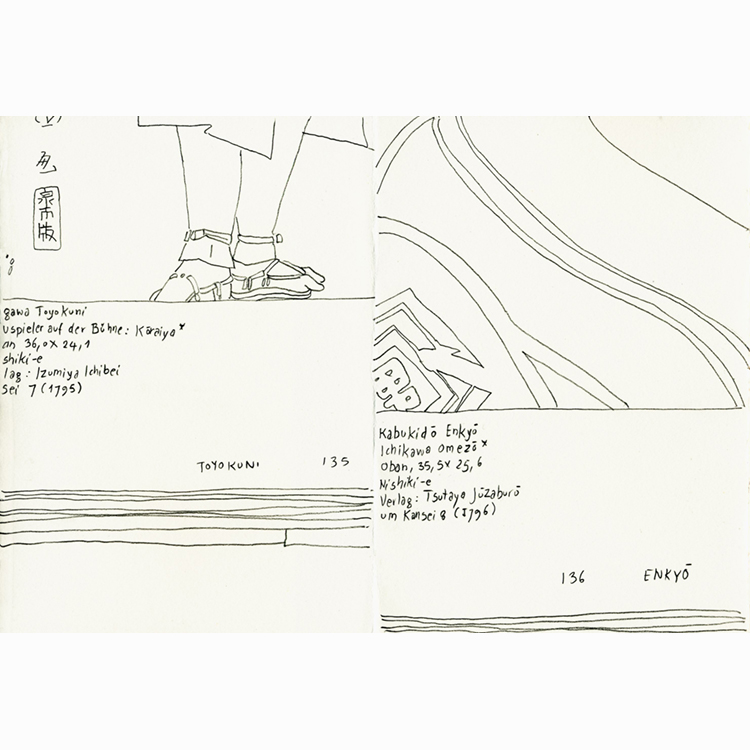 画
泉市版
gawa Toyokuni
uspieler auf der Bühne: Karaiya*
an 36,0 x 24,1
shiki-e
lag: Izumiya Ichibei
sei 7 (1795)
TOYOKUNI 135
Kabukidō Enkyō
Ichikawa Omezō*
Oban, 35,5 x 25,6
Nishiki-e
Verlag: Tsutaya Jūzaburō
um Kansei 8 (1796)
136 ENKYŌ